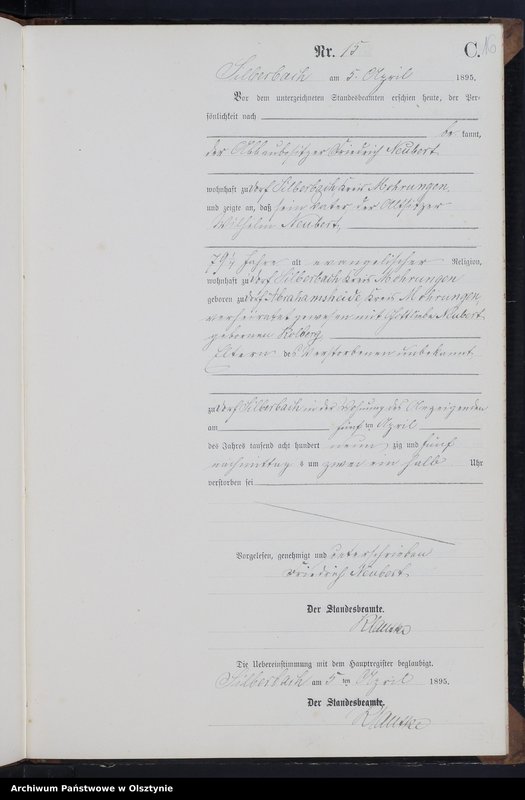 Nr. 15
C.
16
Silberbach am 5. April 1895.
Vor dem unterzeichneten Standesbeamten erschien heute, der Per-
sönlichkeit nach
be kannt,
der Abbaubesitzer Friedrich Neubert
wohnhaft zu Dorf Silberbach Kreis Mohrungen,
und zeigte an, daß sein Vater der Altsitzer
Wilhelm Neubert,
79½ Jahre alt evangelischer Religion,
wohnhaft zu Dorf Silberbach Kreis Mohrungen
geboren zu Dorf Abrahamsheide, Kreis Mohrungen,
verheirathet gewesen mit Gottliebe Neubert
gebornen Kolberg,
Eltern des Verstorbenen unbekannt
zu Dorf Silberbach in der Wohnung des Anzeigenden
am fünf ten April
des Jahres tausend acht hundert neun zig und fünf
nachmittag s um zwei ein halb Uhr
verstorben sei
Vorgelesen, genehmigt und unterschrieben
Friedrich Neubert.
Der Standesbeamte.
Die Uebereinstimmung mit dem Hauptregister beglaubigt.
Silberbach am 5 ten April 1895.
Der Standesbeamte.
Archiwum Państwowe w Olsztynie